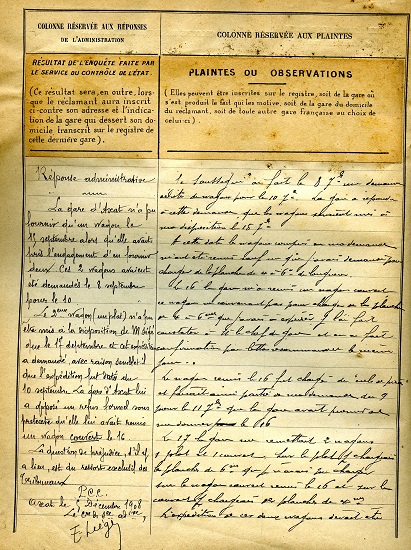 COLONNE RÉSERVÉE AUX RÉPONSES
DE L'ADMINISTRATION
RÉSULTAT DE L'ENQUÊTE FAITE PAR
LE SERVICE DU CONTRÔLE DE L'ÉTAT.
(Ce résultat sera, en outre, lors-
que le réclamant aura inscrit
ci-contre son adresse et l'indica-
tion de la gare qui dessert son do-
micile transcrit sur le registre de
cette dernière gare).
Réponse administrative
La gare d'Axat n'a pu
fournir qu'un wagon le
15 septembre alors qu'elle avait
pris l'engagement d'en fournir
deux. Ces 2 wagons avaient
été demandés le 8 septembre
pour le 10
Le 2ème wagon (un plat) n'a pu
être mis à la disposition de M
que le 17 septembre et cet
a demandé avec raison
que l'expédition fut du
10 septembre. La gare d'Axat lui
a opposé un refus formel sous
prétexte qu'elle lui avait remis
un wagon couvert le 16
La question de préjudice, s'il y
a lieu, est du ressort exclusif des
Tribunaux
P.C.C.
Axat le Décembre 1908
Le
COLONNE RÉSERVÉE AUX PLAINTES
PLAINTES OU OBSERVATIONS
(Elles peuvent être inscrites sur le registre, soit de la gare où
s'est produit le fait qui les motive, soit de la gare du domicile
du réclamant, soit de toute autre gare française au choix de
celui-ci).
Le soussigné a fait le 8 7bre une demande
de wagon pour le 10 7bre. La gare a répondu
à cette demande que les wagons seraient mis à
ma disposition le 15 7bre
A cette date le wagon couvert en ma demande
m'ont été remis sauf un que j'avais demandé pour
charger de la planche de 4 à 6m de longueur.
Le 16 la gare m'a remis un wagon couvert
ce wagon ne convenant pas pour charger de la planche
de 4 à 6m que j'avais à expédier, je l'ai fait
constater à M le chef de gare et en ai fait
confirmation par lettre
jour.
Le wagon remis le 16 fut chargé de
et faisait ainsi partie de ma demande du 9
pour le 11 7bre que la gare avait promis
me donner pour le 16
Le 17 la gare me remettait 2 wagons
1 plat et 1 couvert. Sur le plat je chargeais
la planche de 6m que je n'avais pu charger
sur le wagon couvert remis le 16 et sur le
couvert je chargeais de planche de 4m
L'expédition de ces deux wagons devait être